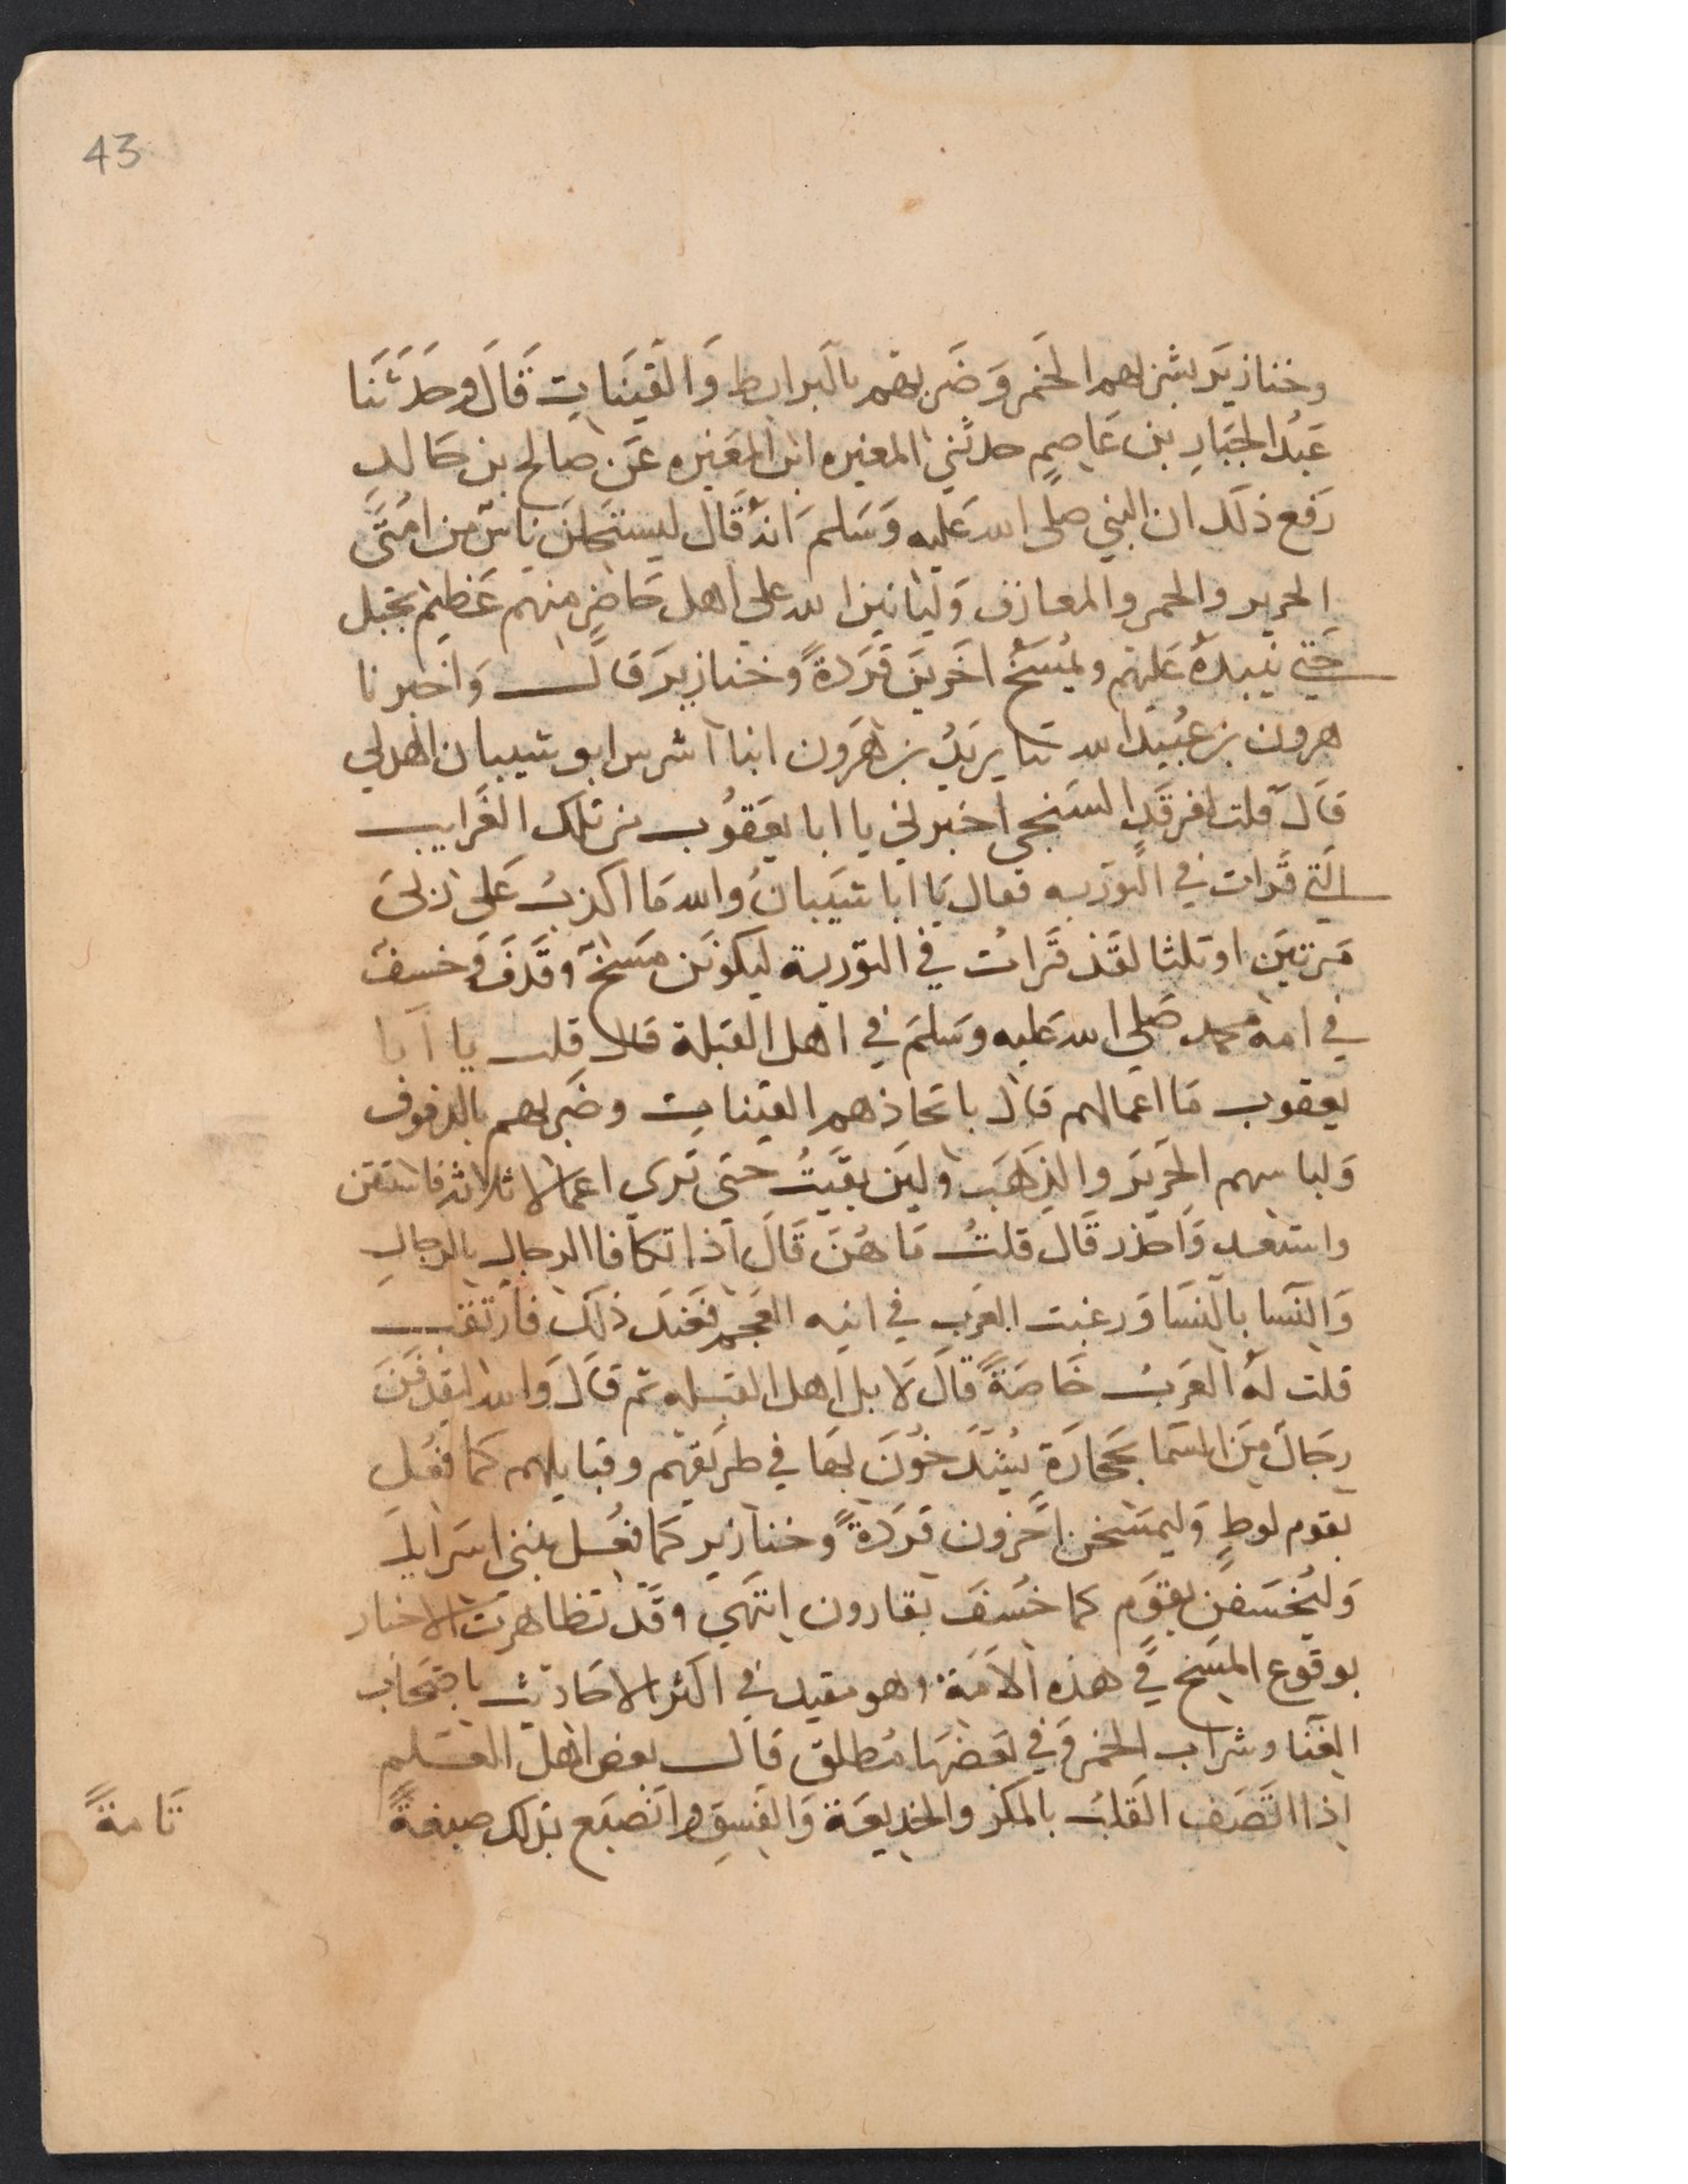 43
وخنازير بشربهم الخمر وَضَربهم بالبَرابط وَالقينَات قَالَ وحَدثنا
عَبْدُ الجبَارِ بن عَاصِمٍ حدثني المغيره ابن المغيره عَن صَالح بن خَالد
رَفع ذلكَ ان النبي صلى الله عَليه وَسَلم انهُ قَال ليستحلنَ ناسٌ من امُتي
الحرير والخمر والمعازف وَليَاتينَ الله على اهل حَاضرٍ منهم عَظيم بجَبل
حَتي ينبدهُ عَليهم ويُمسَخُ اخَرينَ قَرَدةً وخنازيرَ قَالَ وَاخبرنا
هرون بن عُبيد الله ثنا يزيدُ بن هَرون انبا اشرس ابو شيبان الهدلي
قَالَ قلت لفرقَد السَنجي اخبرني يا ابا يعَقوُب من تلك الغَرايب
التي قَرات في التَوريه فقال يَا ابا شيَبانُ والله مَا اكذبُ عَلى رَبي
مَرتين او ثلثا لقَد قَراتُ في التوَرية ليكونَن مَسَخٌ وقَذفٌ وَخسفٌ
في امة محمد صَلى الله عَليه وسَلمَ في اهل القبَلة قَال قلت يا ابا
يعقوب مَا اعمالهم قَال باتخاذهم القينَات وضَربهم بالدفوف
وَلباسهم الحَريَر والذهَب ولين بقَيتُ حَتى تَري اعمَالا ثلاثة فاستَقن
واستعد وَاحذر قَال قلتُ مَا هُنَ قَالَ اذا تكافا الرجال بالرجالِ
وَالنسَا بالنسَا وَرغبت العَرب في انيه العَجم فعَندَ ذلكَ فارتقب
قلت لَهُ العَربُ خَاصَةً قَالَ لَا بل اهل القبله ثم قَالَ وَالله ليقذفَنَ
رِجَالٌ مِنَ السَمَا بحجَارَةٍ يُشدَخُونَ بهَا في طرُيقهِم وقبايلهم كما فعُل
بقوم لوطٍ وَليمسَخن اخَرون قرَدةً وخنازير كمَا فعُل ببني اسرَايل
وَليُخسَفن بقَومٍ كما خُسفَ بقارون انتهَي وقَد تظاهرت الاخبار
بوقوع المسخ في هذه الامَة وهو مقيد في اكثر الاحاديث باصحَاب
الغنَا وشراب الخمَر وَفي بَعضهَا مُطلق قَال بعض اهل العَلم
اذا اتصَف القَلبُ بالمكَر والخديعَة وَالفسقِ وانصَبَغ بذلك صبغةً
تَامةً